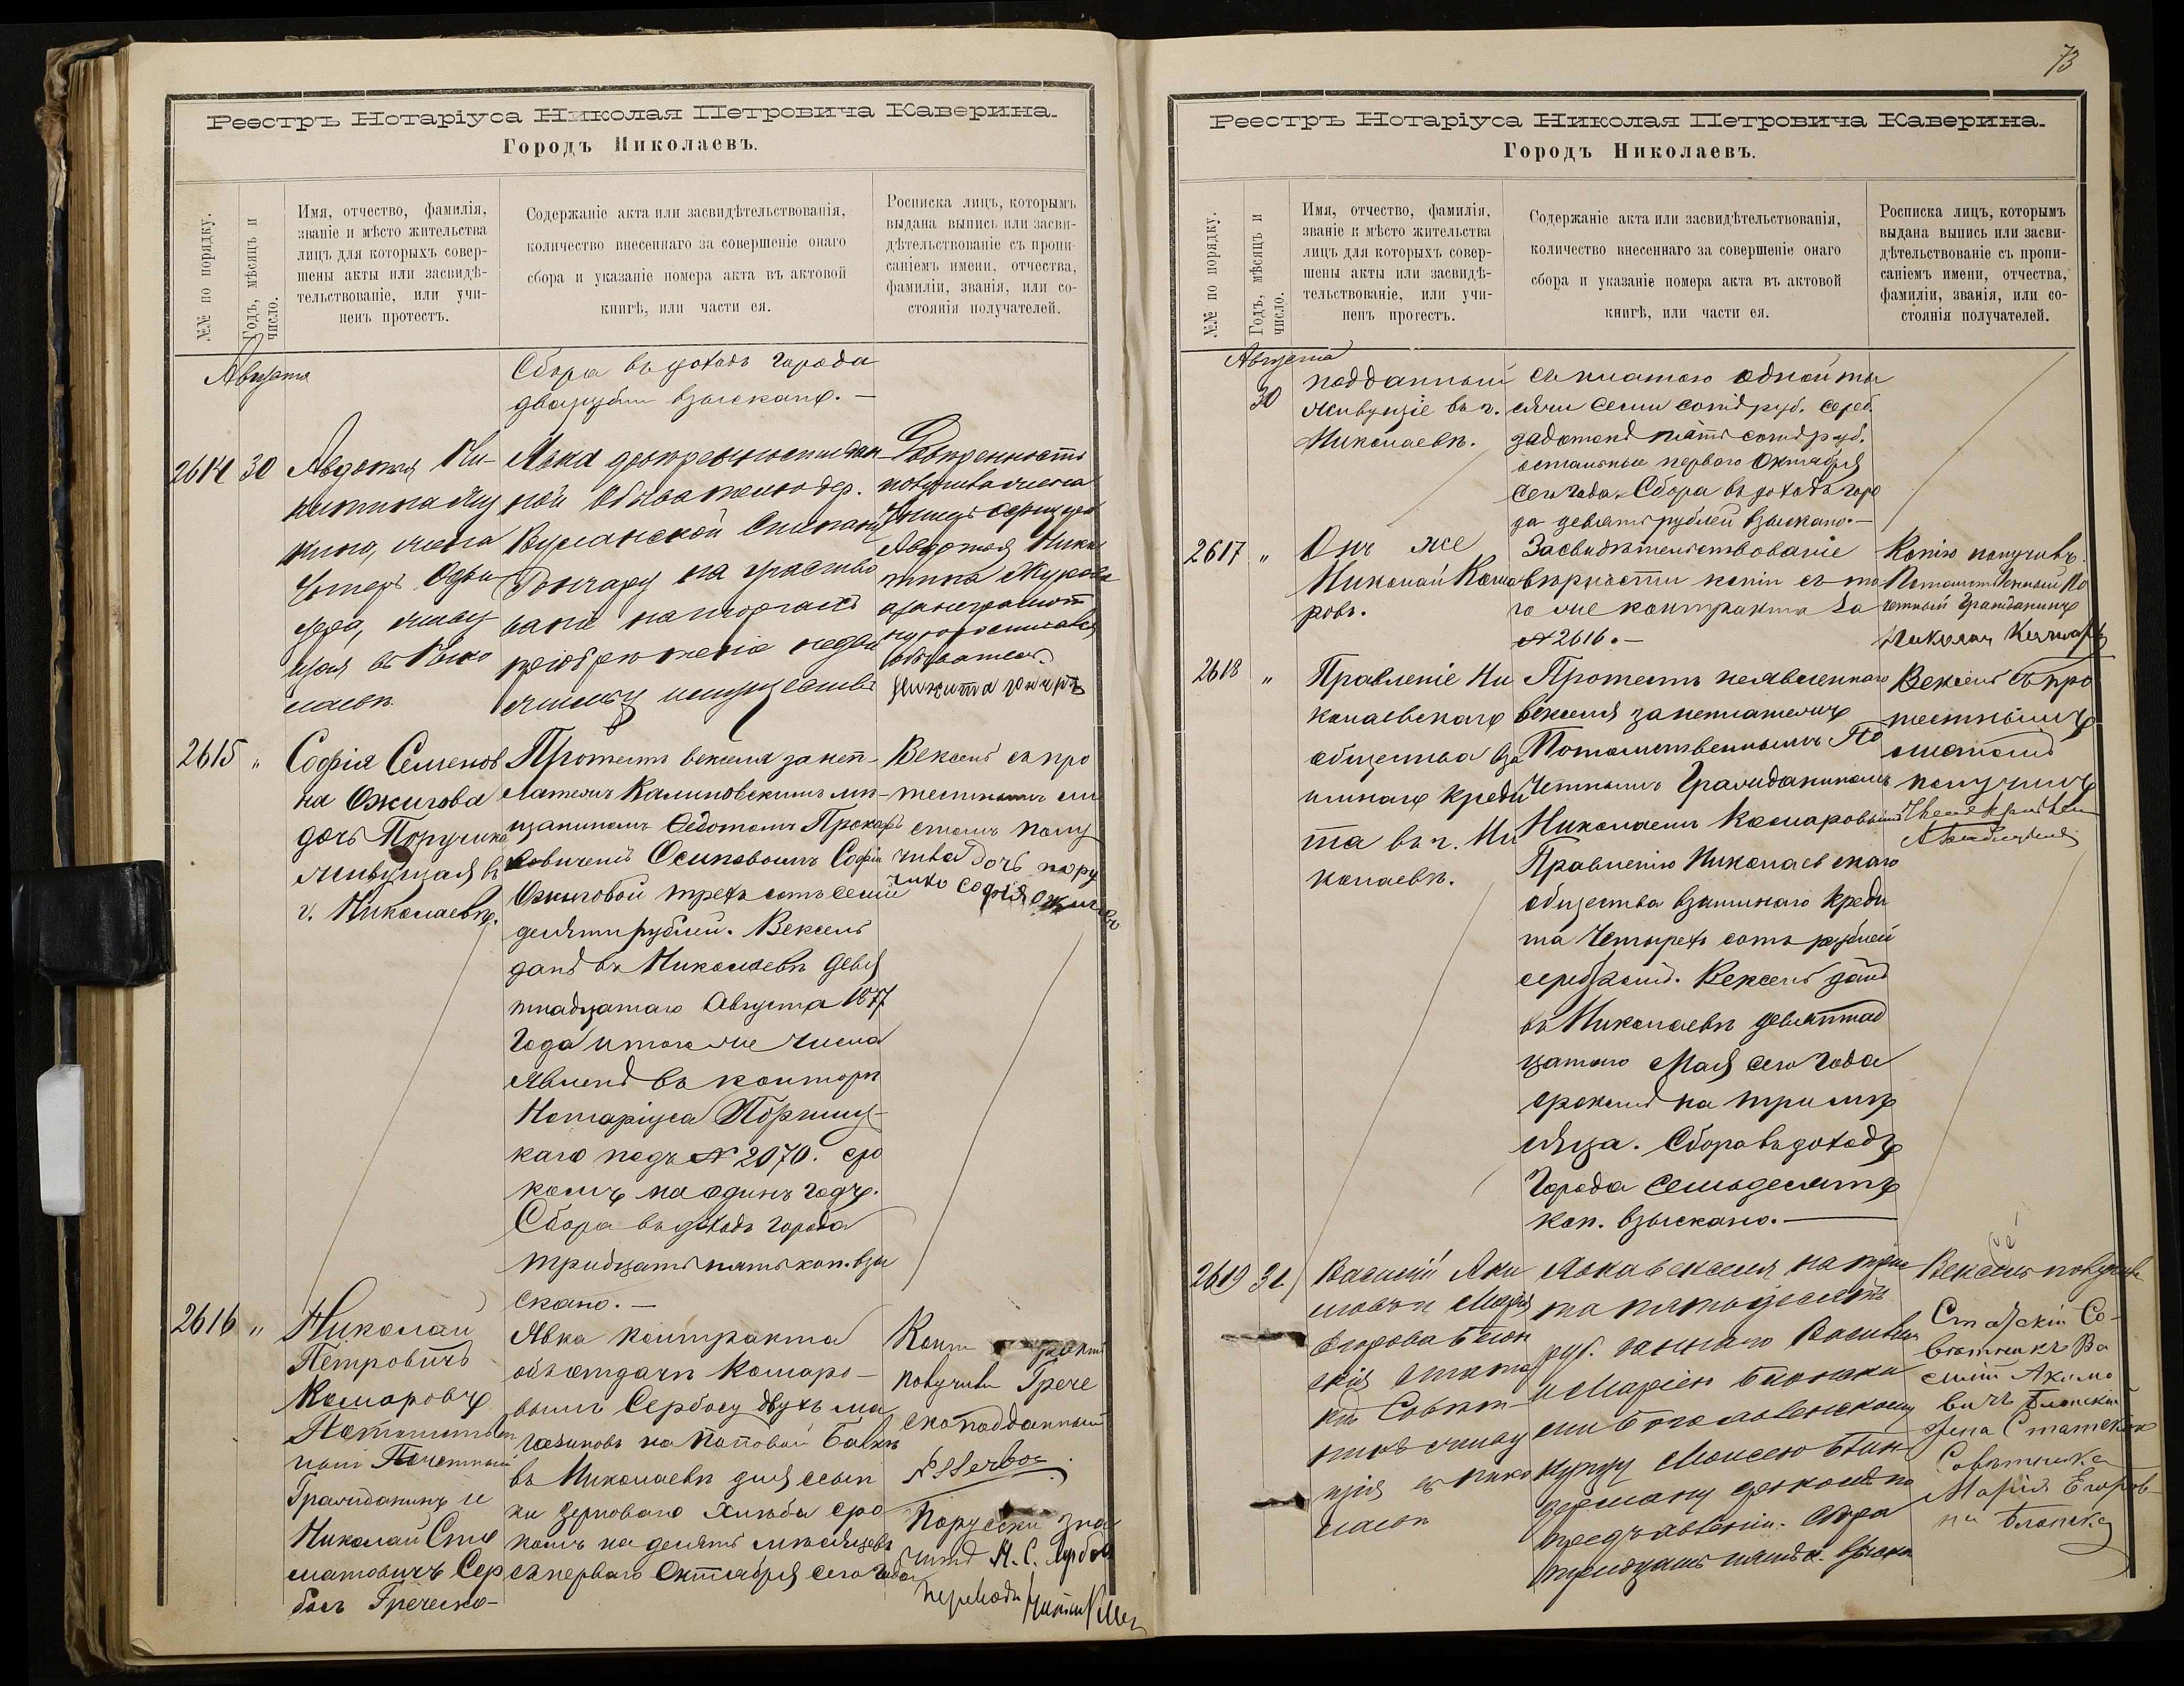 Реестръ Нотаріуса Николая Петровича Каверина.
Городъ Николаевъ.
№№ по порядку.
Годъ, мѣсяцъ и
число.
Имя, отчество, фамилія,
званіе и мѣсто жительства
лицъ для которыхъ совер-
шены акты или засвидѣ-
тельствованіе, или учи-
ненъ протестъ.
Содержаніе акта или засвидѣтельствованія,
количество внесеннаго за совершеніе онаго
сбора и указаніе номера акта въ актовой
книгѣ, или части ея.
Росписка лицъ, которымъ
выдана выпись или засви-
дѣтельствованіе съ пропи-
саніемъ имени, отчества,
фамиліи, званія, или со-
стоянія получателей.
Августа
Сбора въ доходъ города
два рубли взыскано. —
2614 30
Авдотья Ни-
китина
жена
живу
щая въ Нико
лаевѣ
Явка довѣренности дан
ной
на участво
ваніе на торгахъ
недви
жимыхъ имуществъ
Довѣренность
получила жена
Авдотья Ники
тина Жукова
а за неграмот
ную росписался
Никита Гончаръ
2615 "
Софія Семенов
на Ожигова
дочь Поручика
живущая въ
г. Николаевѣ.
Протестъ векселя за неп-
латежъ Калиновскимъ мѣ-
щаниномъ Федотомъ Прокофь
евичемъ Осиповымъ Софіи
Ожиговой трехъ сотъ семи
десяти рублей. Вексель
данъ въ Николаевѣ девя
тнадцатаго Августа 1877
Года и того же числа
явленъ въ конторѣ
Нотаріуса
каго подъ № 2070. сро
комъ на одинъ годъ.
Сбора въ доходъ города
тридцать пять коп. взы
скано. —
Вексель съ про
тестнымъ ли
стомъ полу
чила дочь пору
чика Софія Ожигова
2616 "
Николай
Петровичъ
Комаровъ
Потомствен
ный Почетный
Гражданинъ и
Николай Ста
матовичъ Сер
босъ Греческо-
Явка контракта
объ отдачѣ Комаро-
вымъ Сербосу двухъ ма
газиновъ на Поповой Балкѣ
въ Николаевѣ для ссып
ки зерноваго хлѣба сро
комъ на десять мѣсяцевъ
съ перваго Октября сего Года
Контрактъ
получилъ Грече
скоподданный
N S Serbos
По русски зна
читъ Н. С. Сербосъ
73
Реестръ Нотаріуса Николая Петровича Каверина.
Городъ Николаевъ.
№№ по порядку.
Годъ, мѣсяцъ и
число.
Имя, отчество, фамилія,
званіе и мѣсто жительства
лицъ для которыхъ совер-
шены акты или засвидѣ-
тельствованіе, или учи-
ненъ протестъ.
Содержаніе акта или засвидѣтельствованія,
количество внесеннаго за совершеніе онаго
сбора и указаніе номера акта въ актовой
книгѣ, или части ея.
Росписка лицъ, которымъ
выдана выпись или засви-
дѣтельствованіе съ пропи-
саніемъ имени, отчества,
фамиліи, званія, или со-
стоянія получателей.
Августа
30
подданный
живущіе въ г.
Николаевѣ.
съ платою одной ты
сячи семи сотъ руб. сереб.
задатокъ пять сотъ руб.
остальные перваго Октября
сего года. Сбора въ доходъ горо
да девять рублей взыскано. —
2617 "
Онъ же
Николай Кома
ровъ.
Засвидѣтельствованіе
вѣрности копіи съ то
го же контракта за
№ 2616. —
Копію получилъ
Потомственный По
четный Гражданинъ
Николай Комаровъ
2618 "
Правленіе Ни
колаевскаго
общества вза
имнаго креди
та въ г. Ни
колаевѣ.
Протестъ неявленнаго
векселя за неплатежъ
Потомственнымъ По
четнымъ Гражданиномъ
Николаемъ Комаровымъ
Правленію Николаевскаго
общества взаимнаго креди
та Четырехъ сотъ рублей
серебромъ. Вексель данъ
въ Николаевѣ девятнад
цатаго Мая сего Года
срокомъ на три мѣ
сяца. Сбора въ доходъ
Города семьдесятъ
коп. взыскано. —
Вексель съ про
тестнымъ
листомъ
получилъ
2619 31
Василій Аки
мовъ и Марія
Егорова Блон
скія Статс
кій Совѣт-
никъ живу
щія въ Нико
лаевѣ
Явка векселя на трис
та пятьдесятъ
руб. даннаго Василіемъ
и Маріею Блонски
ми Богоявленскому
купцу Моисею Бин
дерману срокомъ по
предъявленіи. Сбора
тридцать пять к. взыска
Вексель получилъ
Статскій Со-
вѣтникъ Ва
силій Акимо
вичъ Блонскій
Жена Статскаго
Совѣтника
Марія Егоров-
на Блонская